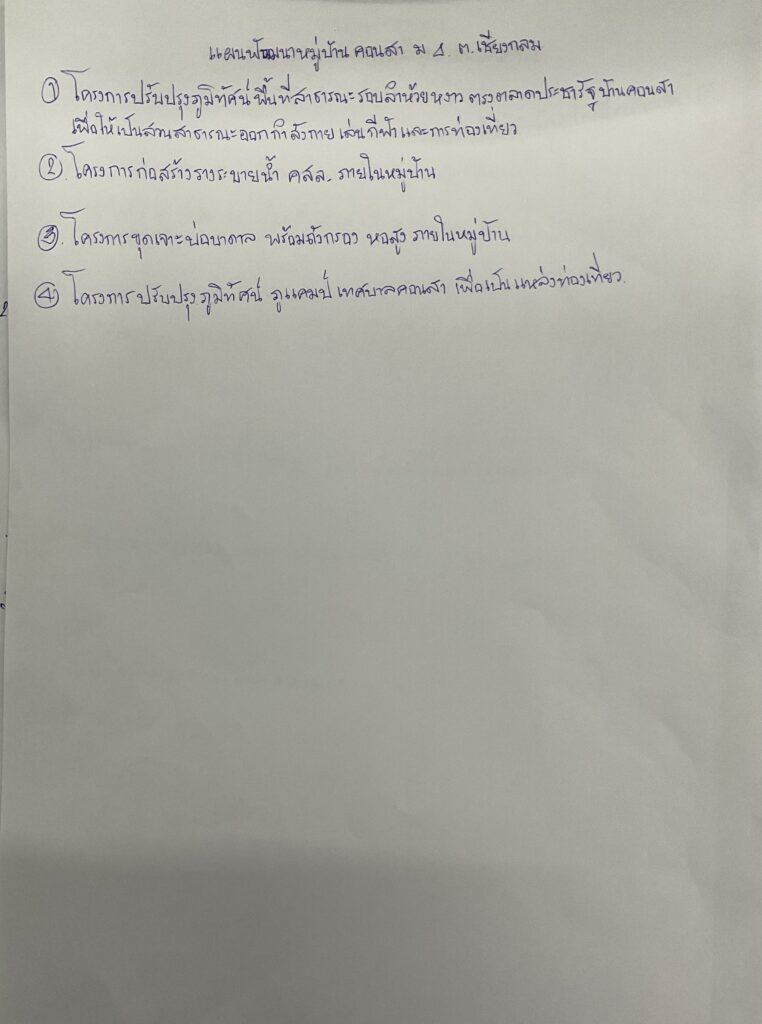 แผนพัฒนาหมู่บ้าน คอนสา ม.4. ต.เชียงกลม
① โครงการปรับปรุงภูมิทัศน์ พื้นที่สาธารณะรอบลำห้วยหงาว ตรงตลาดประชารัฐบ้านคอนสา
เพื่อให้เป็นสวนสาธารณะออกกำลังกาย เล่นกีฬาและการท่องเที่ยว
②. โครงการก่อสร้างรางระบายน้ำ คสล. ภายในหมู่บ้าน
③. โครงการขุดเจาะบ่อบาดาล พร้อมถังกรอง หอสูง ภายในหมู่บ้าน
④. โครงการปรับปรุงภูมิทัศน์ ภูแคมป์ เทศบาลคอนสา เพื่อเป็นแหล่งท่องเที่ยว.